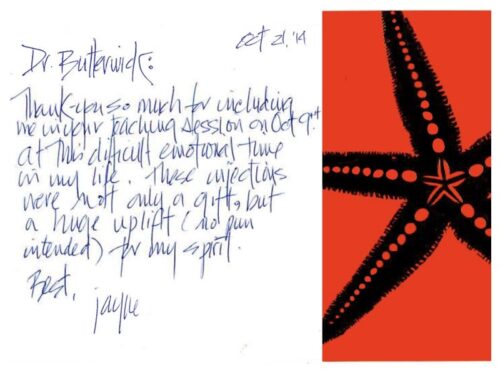 Oct 21, '14
Dr. Butterwick:
Thank-you so much for including
me in your teaching session on Oct 9th
at this difficult emotional time
in my life. These injections
were not only a gift, but
a huge uplift (no pun
intended) for my spirit.
Best,
jayne